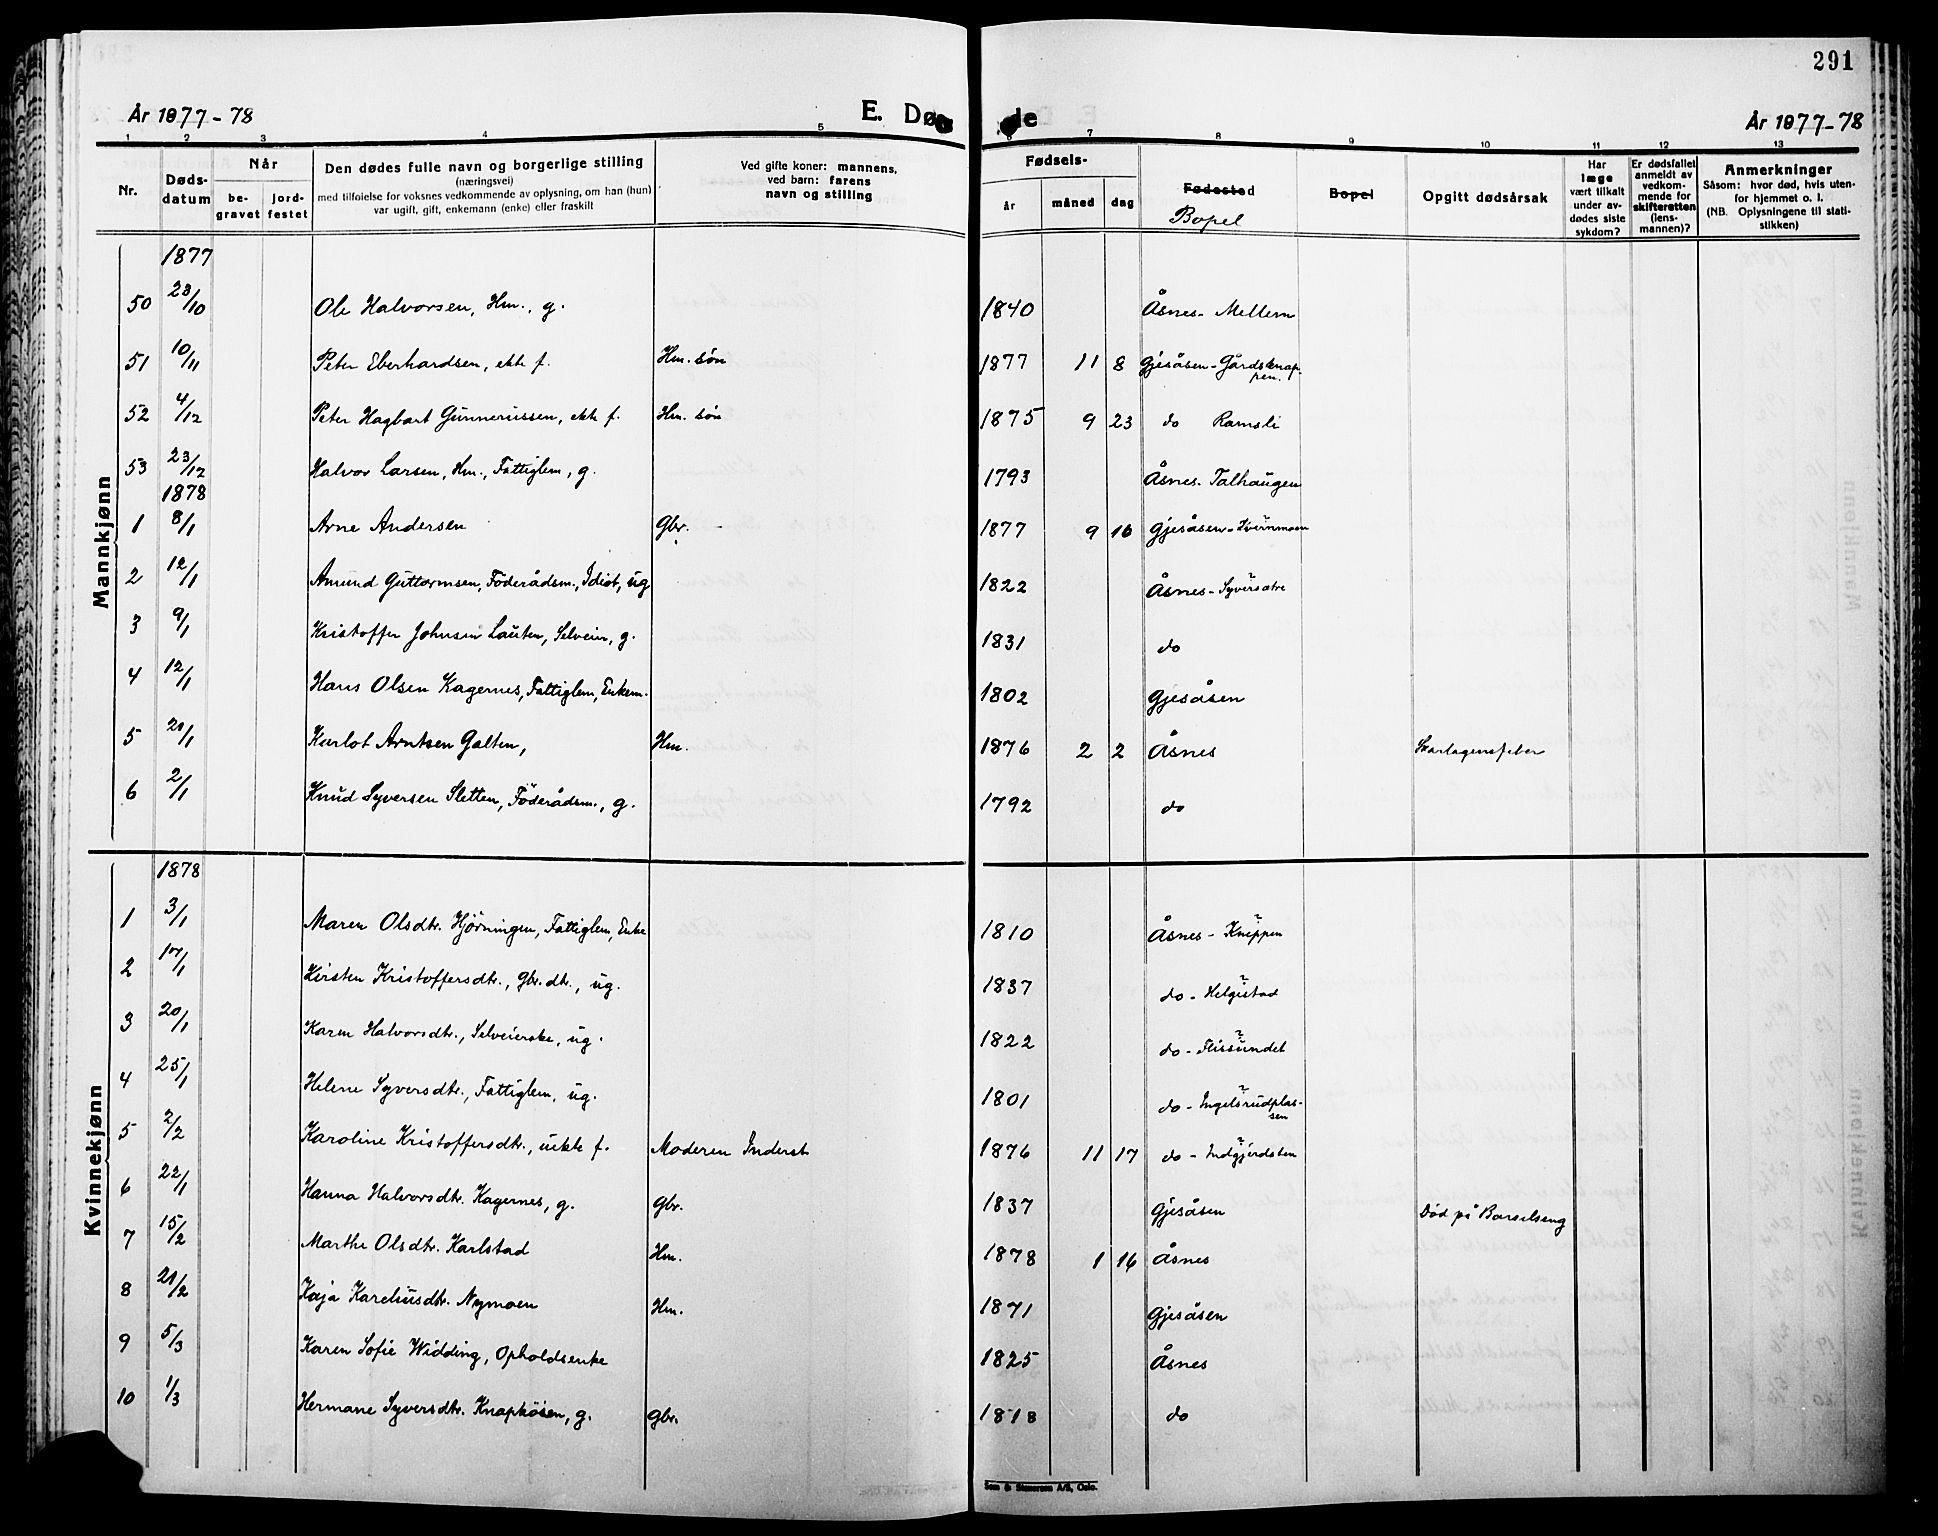 291
År 1877-78 E. Døde År 1877-78
1 2 3 4 5 6 7 8 9 10 11 12 13
Nr. Døds-datum Når be-gravet jord-festet Den dødes fulle navn og borgerlige stilling (næringsvei) med tilføielse for voksnes vedkommende av oplysning, om han (hun) var ugift, gift, enkemann (enke) eller fraskilt Ved gifte koner: mannens, ved barn: farens navn og stilling Fødsels- år måned dag Fødested Bopel Bopel Opgitt dødsårsak Har læge vært tilkalt under av-dødes siste sykdom? Er dødsfallet anmeldt av vedkom-mende for skifteretten (lens-mannen)? Anmerkninger Såsom: hvor død, hvis uten-for hjemmet o. l. (NB. Oplysningene til stati-stikken)
Mannkjønn
1877
50 23/10 Ole Halvorsen, Hm., g. 1840 Åsnes - Mellem
51 10/11 Peter Eberhardsen, ekte f. Hm. søn 1877 11 8 Gjesåsen - Gårdsknap-pen.
52 4/12 Peter Hagbart Gunnerussen, ekte f. Hm. søn 1875 9 23 do Ramsli
53 23/12 Halvor Larsen, Hm., Fattiglem, g. 1793 Åsnes - Talhaugen
1878
1 8/1 Arne Andersen Gbr. 1877 9 16 Gjesåsen - Kvernmoen
2 12/1 Amund Guttormsen, Föderådsm., Idiot, ug 1822 Åsnes - Syversætre
3 9/1 Kristoffer Johnsen Lauten, Selveier, g. 1831 do
4 12/1 Hans Olsen Kagernes, Fattiglem, Enkem. 1802 Gjesåsen
5 21/1 Karlot Arntsen Galten, Hm. 1876 2 2 Åsnes Skarlagensfeber
6 2/1 Knud Syversen Sletten, Föderådsm., g. 1792 do
Kvinnekjønn
1878
1 3/1 Maren Olsdtr. Hjørningen, Fattiglem, Enke 1810 Åsnes - Kneppen
2 17/1 Kirsten Kristoffersdtr., Gbr. dtr., ug. 1837 do - Helgistad
3 20/1 Karen Halvorsdtr., Selveierske, ug. 1822 do - Flissundet
4 25/1 Helene Syversdtr., Fattiglem, ug. 1801 do - Ingelsrudplas-sen
5 2/2 Karoline Kristoffersdtr., uekte f. Moderen Inderst 1876 11 17 do - Indgjerdsten
6 22/1 Hanna Halvorsdtr. Kagernes, g. Gbr. 1837 Gjesåsen Død på Barselseng
7 15/2 Marthe Olsdtr. Karlstad Hm. 1878 1 16 Åsnes
8 21/2 Kaja Kareliusdtr. Nymoen Hm. 1871 Gjesåsen
9 5/3 Karen Sofie Widding, Opholdsenke 1825 Åsnes
10 1/3 Hermane Syversdtr. Knapkåsen, g. Gbr. 1818 do
Sem & Stenersen A/S, Oslo.